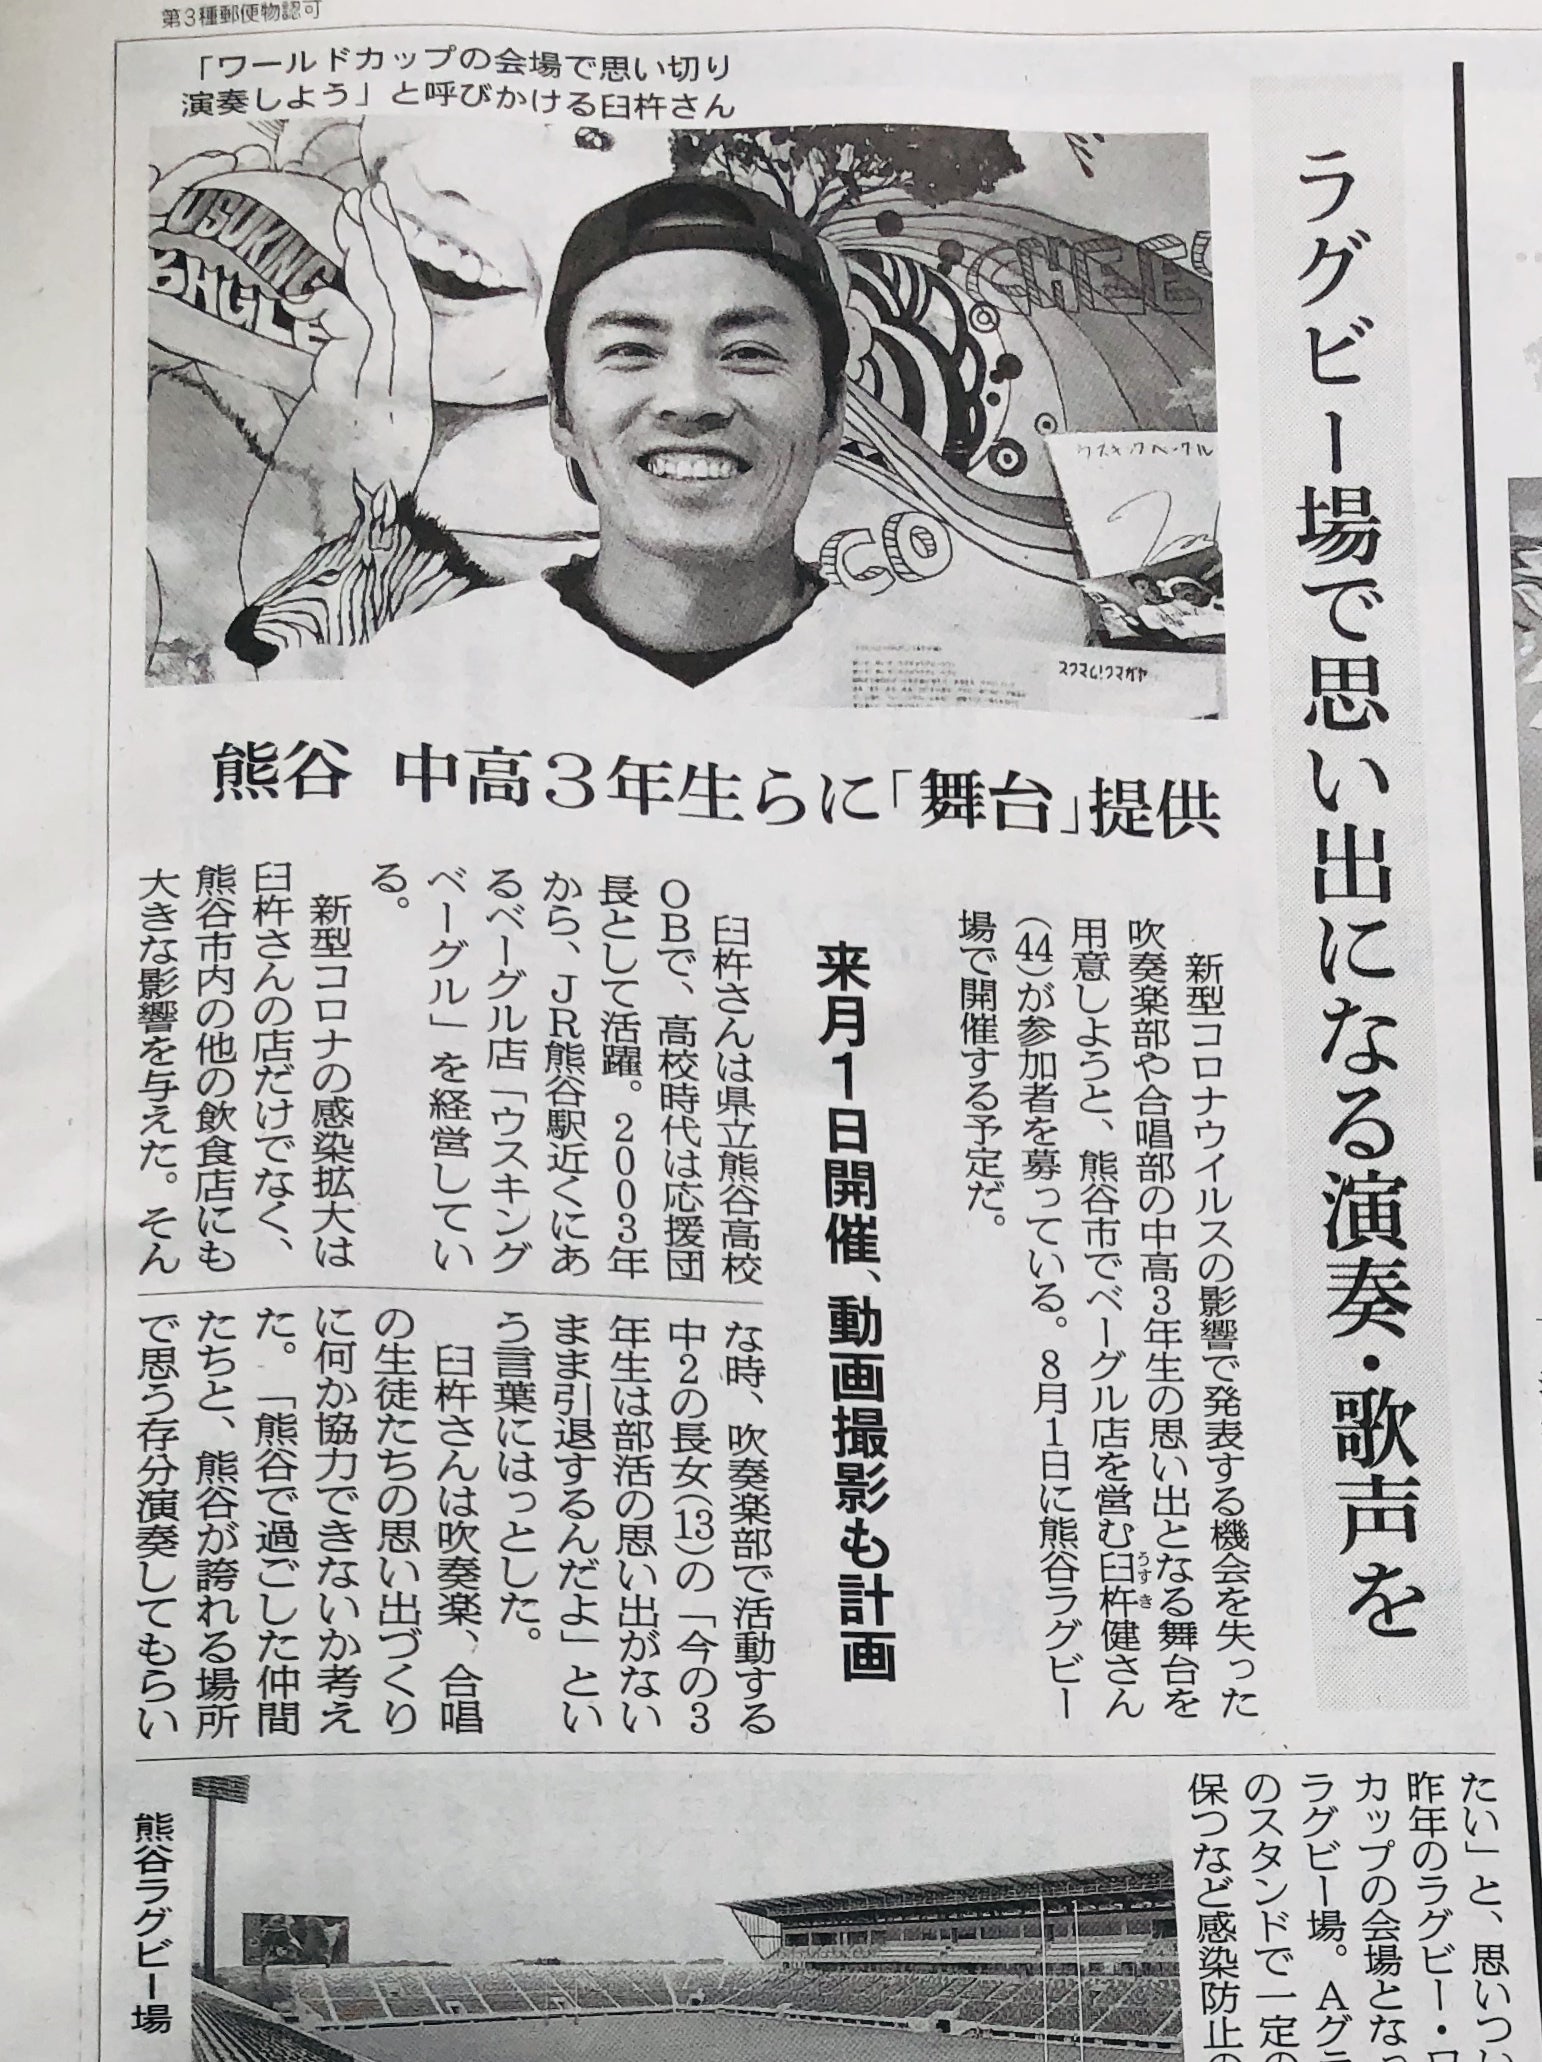 第3種郵便物認可
「ワールドカップの会場で思い切り
演奏しよう」と呼びかける臼杵さん
USUKING
BAGLE
CHEE
CO
ウスキングベーグル
スクマム!クマガヤ
ラグビー場で思い出になる演奏・歌声を
熊谷 中高3年生らに「舞台」提供
新型コロナウイルスの影響で発表する機会を失った
吹奏楽部や合唱部の中高3年生の思い出となる舞台を
用意しようと、熊谷市でベーグル店を営む臼杵健さん
うすき
(44)が参加者を募っている。8月1日に熊谷ラグビー
場で開催する予定だ。
来月1日開催、動画撮影も計画
臼杵さんは県立熊谷高校
OBで、高校時代は応援団
長として活躍。2003年
から、JR熊谷駅近くにあ
るベーグル店「ウスキング
ベーグル」を経営してい
る。
新型コロナの感染拡大は
臼杵さんの店だけでなく、
熊谷市内の他の飲食店にも
大きな影響を与えた。そん
な時、吹奏楽部で活動する
中2の長女(13)の「今の3
年生は部活の思い出がない
まま引退するんだよ」とい
う言葉にはっとした。
臼杵さんは吹奏楽、合唱
の生徒たちの思い出づくり
に何か協力できないか考え
た。「熊谷で過ごした仲間
たちと、熊谷が誇れる場所
で思う存分演奏してもらい
たい」と、思いつい
昨年のラグビー・ワ
カップの会場となっ
ラグビー場。Aグラ
のスタンドで一定の
保つなど感染防止の
熊谷ラグビー場